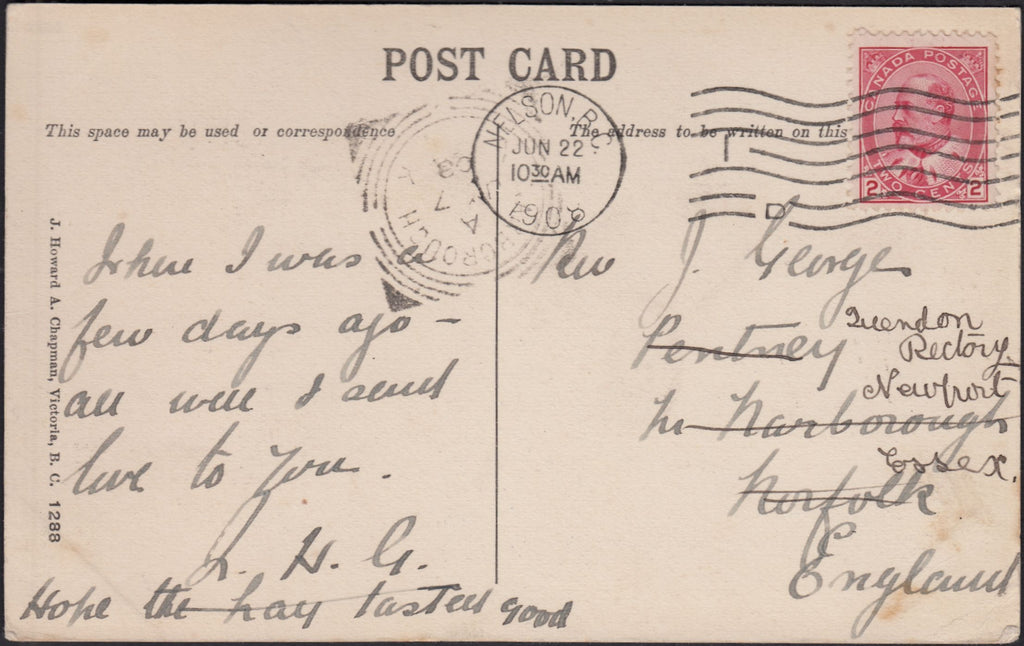 POST CARD
This space may be used or correspondence
The address to be written on this
NELSON, B.C.
JUN 22
10 30 AM
1908
CANADA POSTAGE
2 TWO CENTS 2
where I was a
few days ago —
all well & send
love to you.
L. H. G.
Hope the hay tasted good
Rev J. George
Pentney
Nr Narborough
Norfolk
England
Quendon
Rectory
Newport
Essex.
J. Howard A. Chapman, Victoria, B. C. 1288